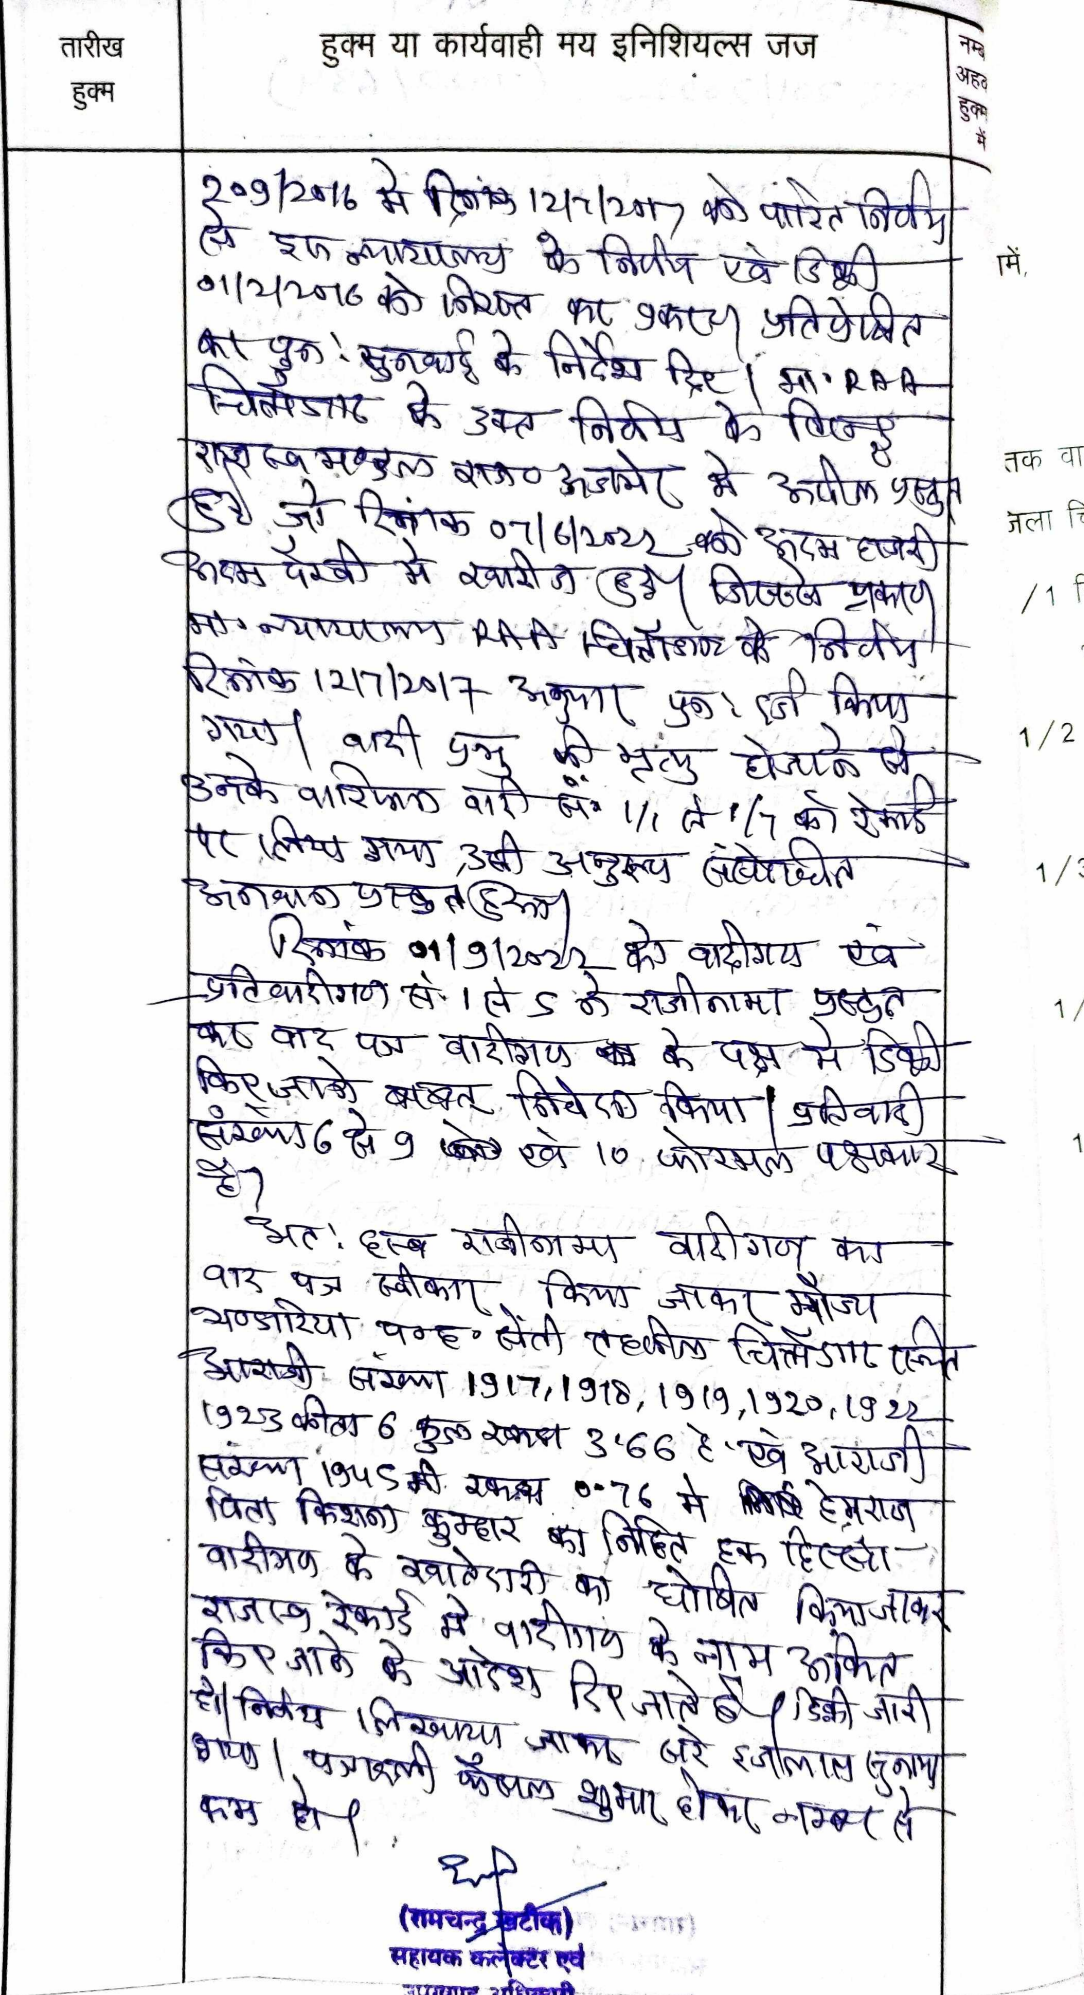 तारीख
हुक्म
हुक्म या कार्यवाही मय इनिशियल्स जज
नम्ब
अहव
हुक्म
में
209/2016 मे दिनांक 12/7/2017 को पारित निर्णय
से इस न्यायालय के निर्णय एवं डिक्री
01/2/2016 को निरस्त कर प्रकरण प्रतिप्रेषित
कर पुनः सुनवाई के निर्देश दिए। मा. RAA
चित्तौडगढ के उक्त निर्णय के विरूद्ध
राजस्व मण्डल राज० अजमेर मे अपील प्रस्तुत
हुई जो दिनांक 07/6/2022 को अदम हाजरी
अदम पैरवी मे खारीज हुई। जिससे प्रकरण
मा. न्यायालय RAA चित्तौडगढ के निर्णय
दिनांक 12/7/2017 अनुसार पुनः दर्ज किया
गया। वादी प्रभु की मृत्यु होजाने से
उनके वारिसान वादी सं. 1/1 से 1/7 को रेकार्ड
पर लिया गया, उसी अनुरूप संशोधित
अनवान प्रस्तुत हुआ।
दिनांक 01/9/2022 को वादीगण एवं
प्रतिवादीगण सं. 1 से 5 ने राजीनामा प्रस्तुत
कर वाद पत्र वादीगण के पक्ष मे डिक्री
किए जाने बाबत् निवेदन किया। प्रतिवादी
संख्या 6 से 9 एवं 10 फोरमल पक्षकार
है।
अतः हस्ब राजीनामा वादीगण का
वाद पत्र स्वीकार किया जाकर मौजा
पण्डारिया प०ह० सेंती तहसील चित्तौडगढ स्थित
आराजी संख्या 1917, 1918, 1919, 1920, 1922
1923 कीता 6 कुल रकबा 3.66 है. एवं आराजी
संख्या 1945 मी. रकबा 0.76 मे हेमराज
पिता किशना कुम्हार का निहित हक हिस्सा
वादीगण के खातेदारी का घोषित किया जाकर
राजस्व रेकार्ड मे वादीगण के नाम अंकित
किए जाने के आदेश दिए जाते है। डिक्री जारी
हो। निर्णय लिखाया जाकर सरे इजलास सुनाया
गया। पत्रावली फैसल शुमार होकर नम्बर से
कम हो।
(रामचन्द्र खटीक)
सहायक कलेक्टर एवं
उपखण्ड अधिकारी
में,
तक वा
जला चि
/1
1/2
1/3
1/
1